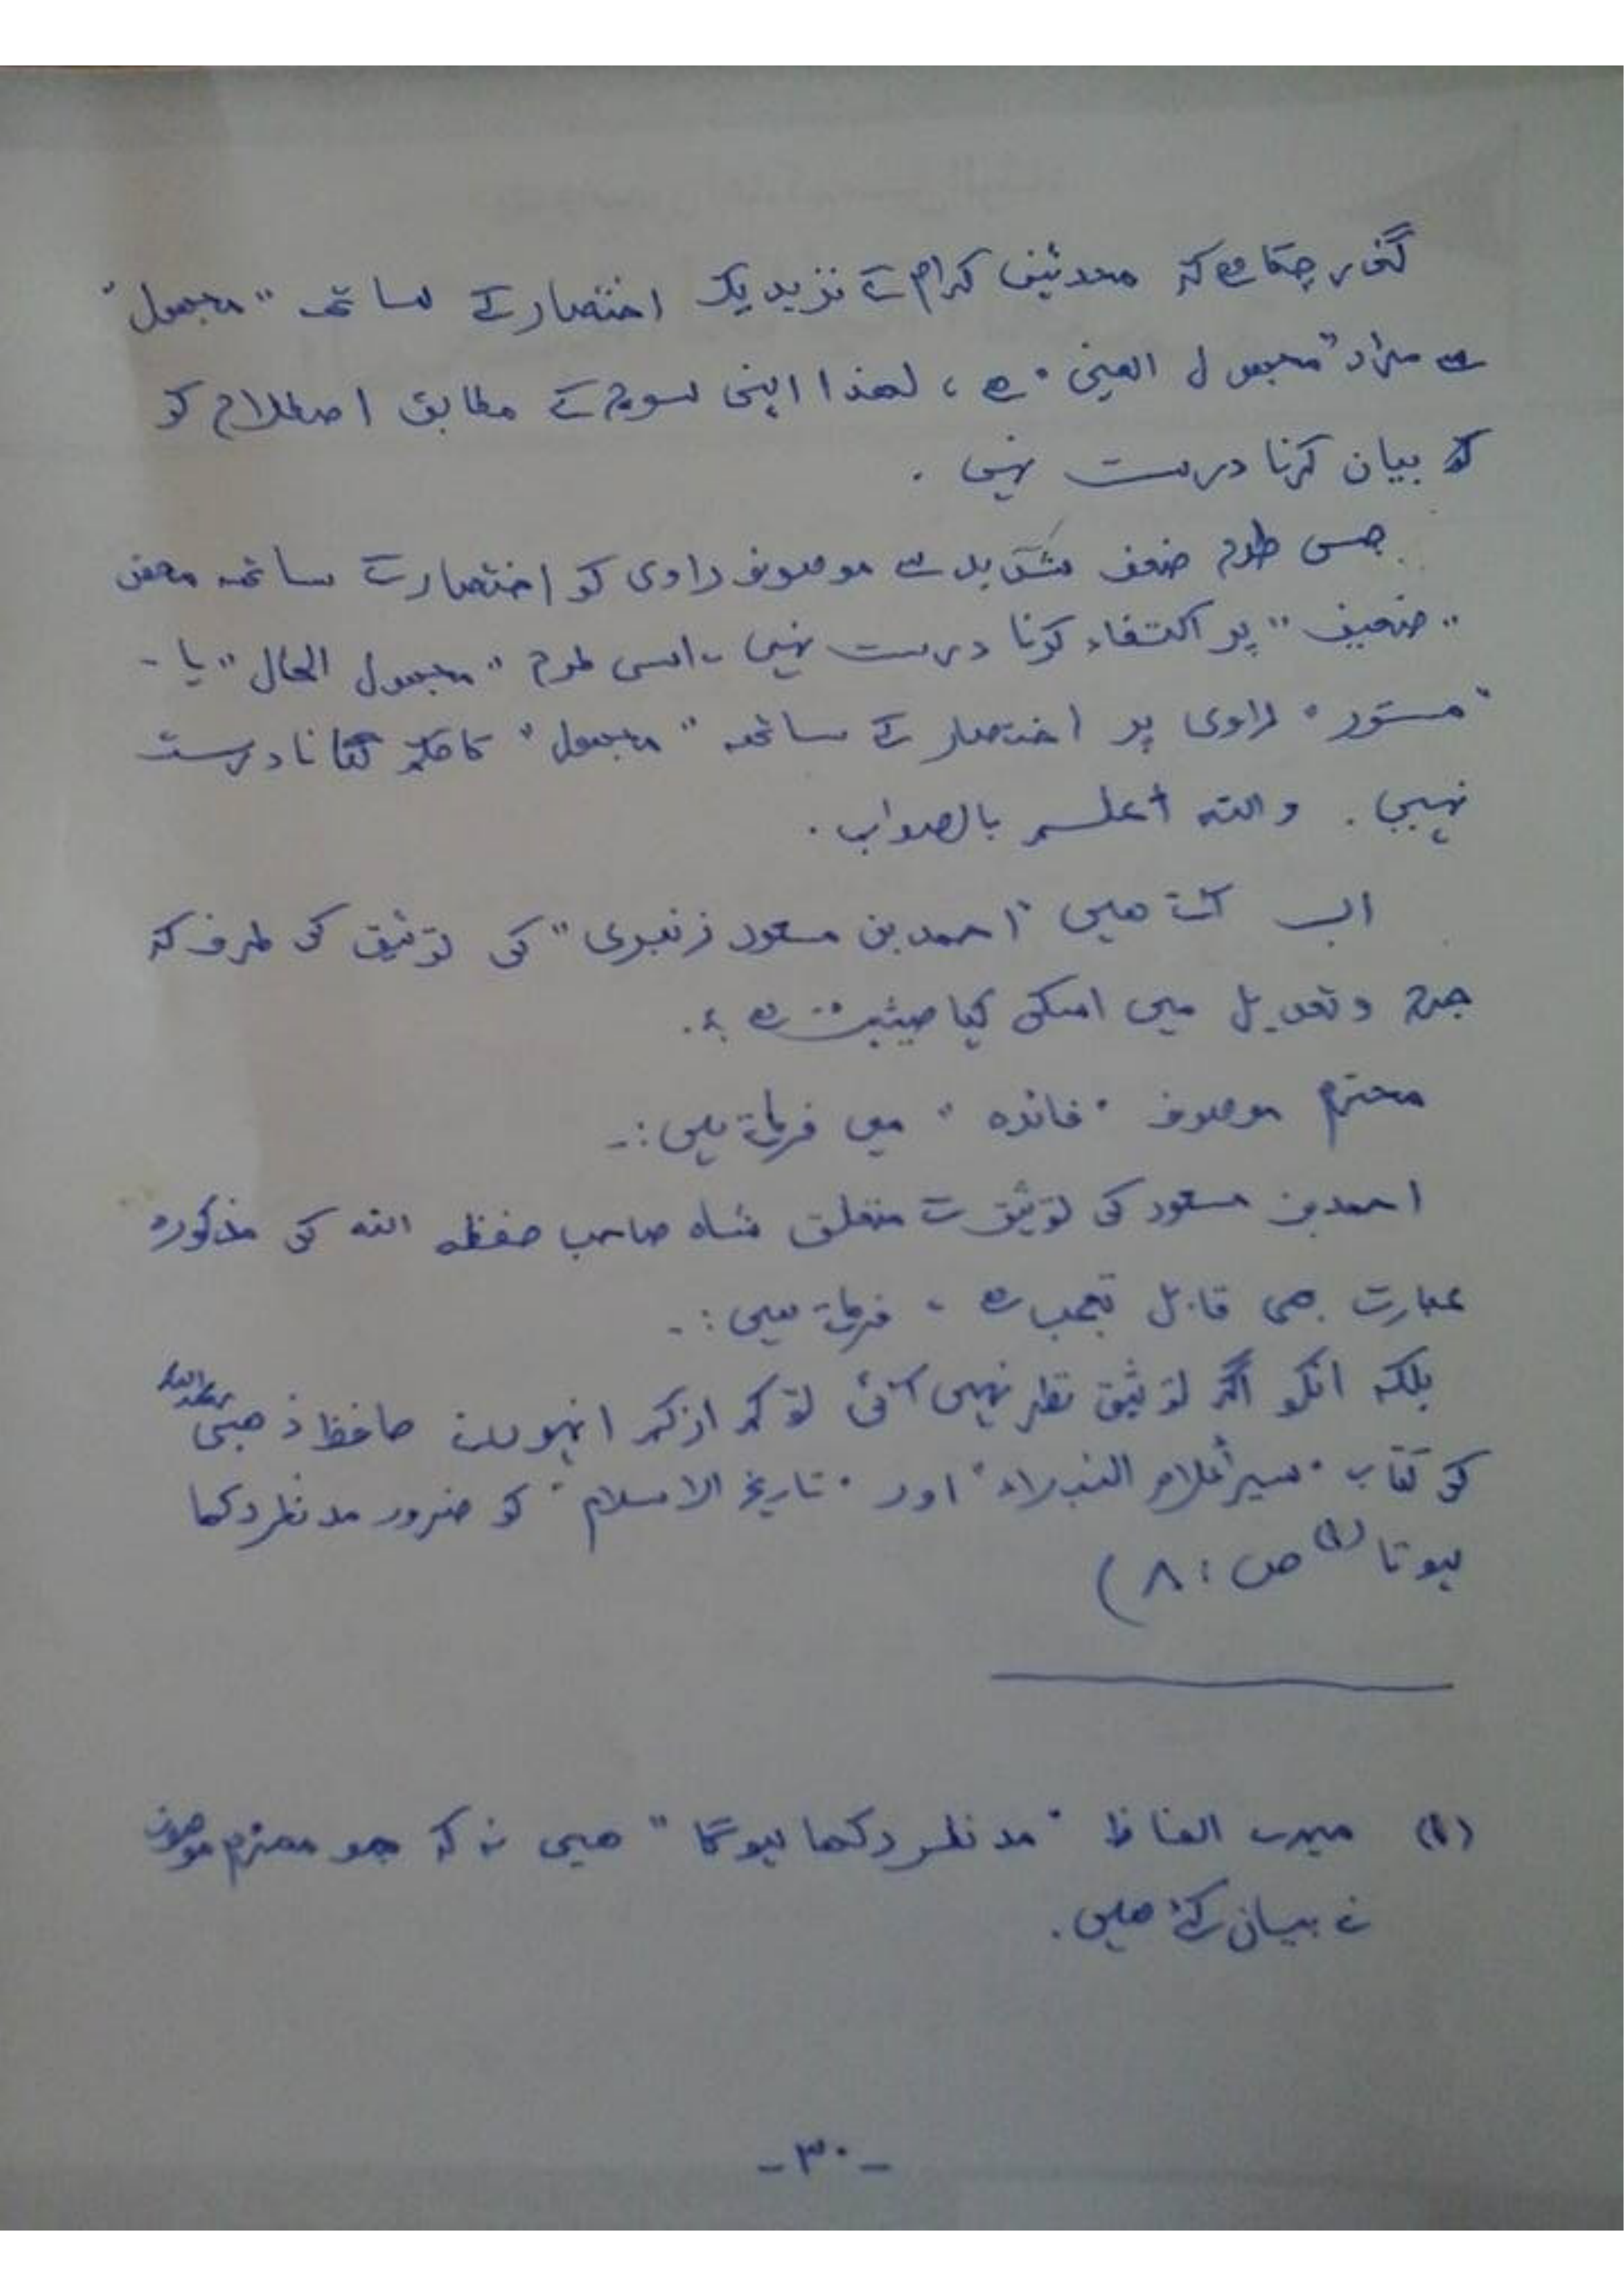 گذر چکا ہے کہ محدثین کرام کے نزدیک اختصار کے ساتھ "مجہول"
سے مراد "مجہول العین" ہے ، لھذا اپنی سوچ کے مطابق اصطلاح کو
کو بیان کرنا درست نہیں .
جس طرح ضعف شدید سے موصوف راوی کو اختصار کے ساتھ محض
"ضعیف" پر اکتفاء کرنا درست نہیں ، اسی طرح "مجہول الحال" یا -
"مستور" راوی پر اختصار کے ساتھ "مجہول" کا حکم لگانا درست
نہیں . واللہ أعلم بالصواب .
اب آتے ھیں "احمد بن مسعود زنبری" کی توثیق کی طرف کہ
جرح وتعدیل میں اسکی کیا حیثیت ہے ؟.
محترم موصوف "فائدہ" میں فرماتے ہیں :-
احمد بن مسعود کی توثیق سے متعلق شاہ صاحب حفظہ اللہ کی مذکورہ
عبارت بھی قابل تعجب ہے ، فرماتے ہیں :-
بلکہ انکو اگر توثیق نظر نہیں آئی تو کم از کم انہوں نے حافظ ذھبی رحمہ اللہ
کی کتاب "سیر أعلام النبلاء" اور "تاریخ الاسلام" کو ضرور مد نظر رکھا
ہوتا (۱) ص : ۸ )
(۱) میرے الفاظ "مد نظر رکھا ہوگا" ھیں نہ کہ جو محترم موصوف
نے بیان کئے ھیں .
- ۳۰ -